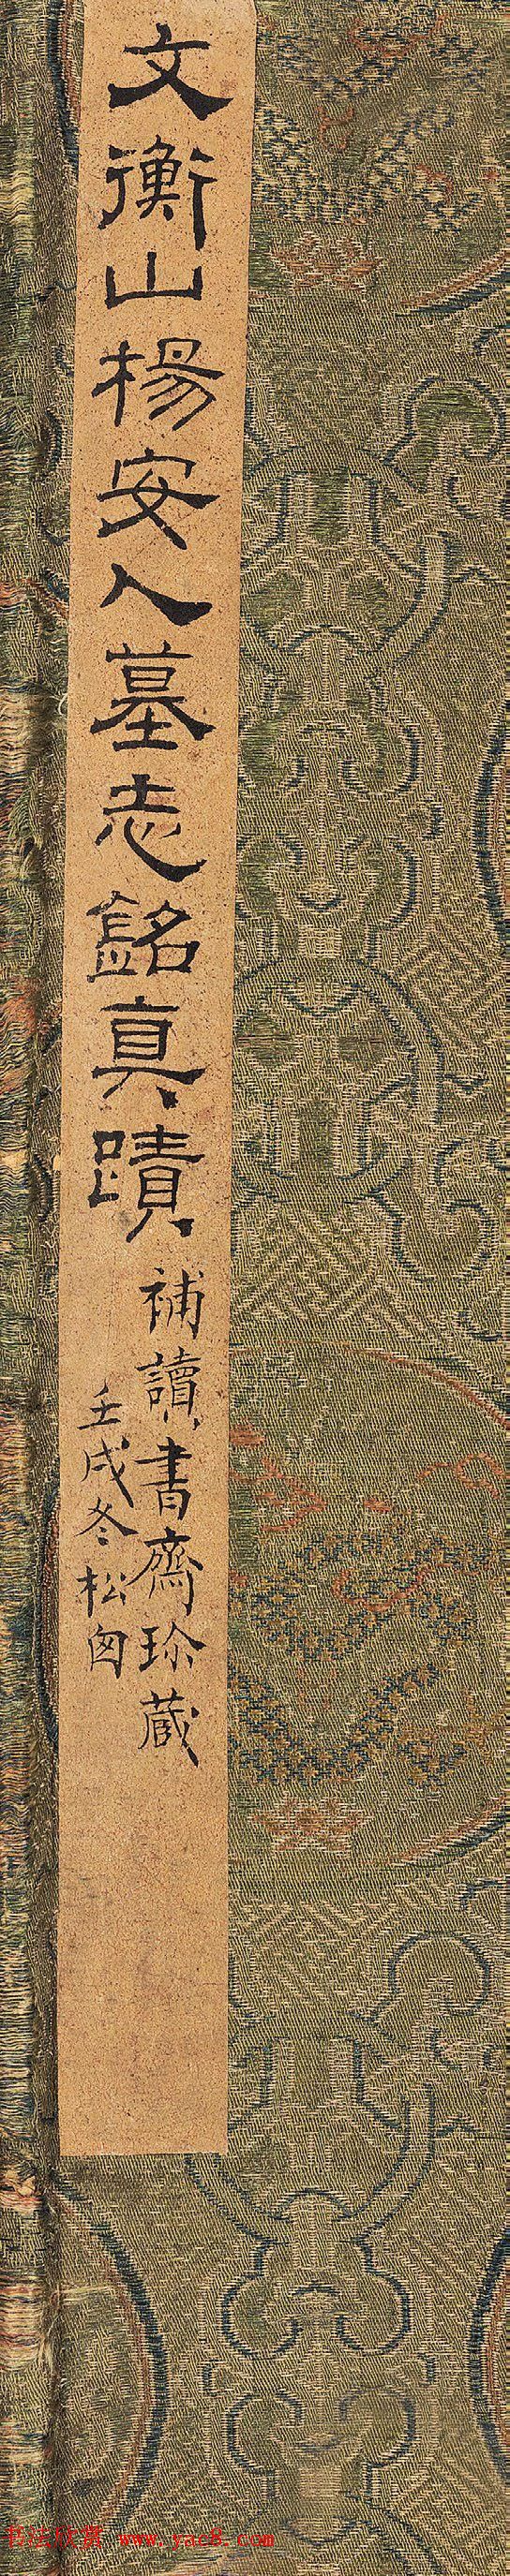 文衡山楊安人墓志銘真蹟
補讀書齋珍藏
壬戌冬松匃
书法欣赏 www.yac8.com